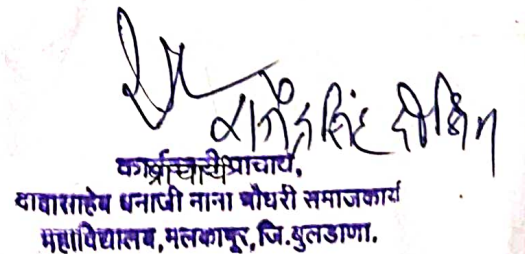 सिंह दीक्षित
प्राचार्य,
दादासाहेब धनाजी नाना चौधरी समाजकार्य
महाविद्यालय, मलकापूर, जि. बुलडाणा.